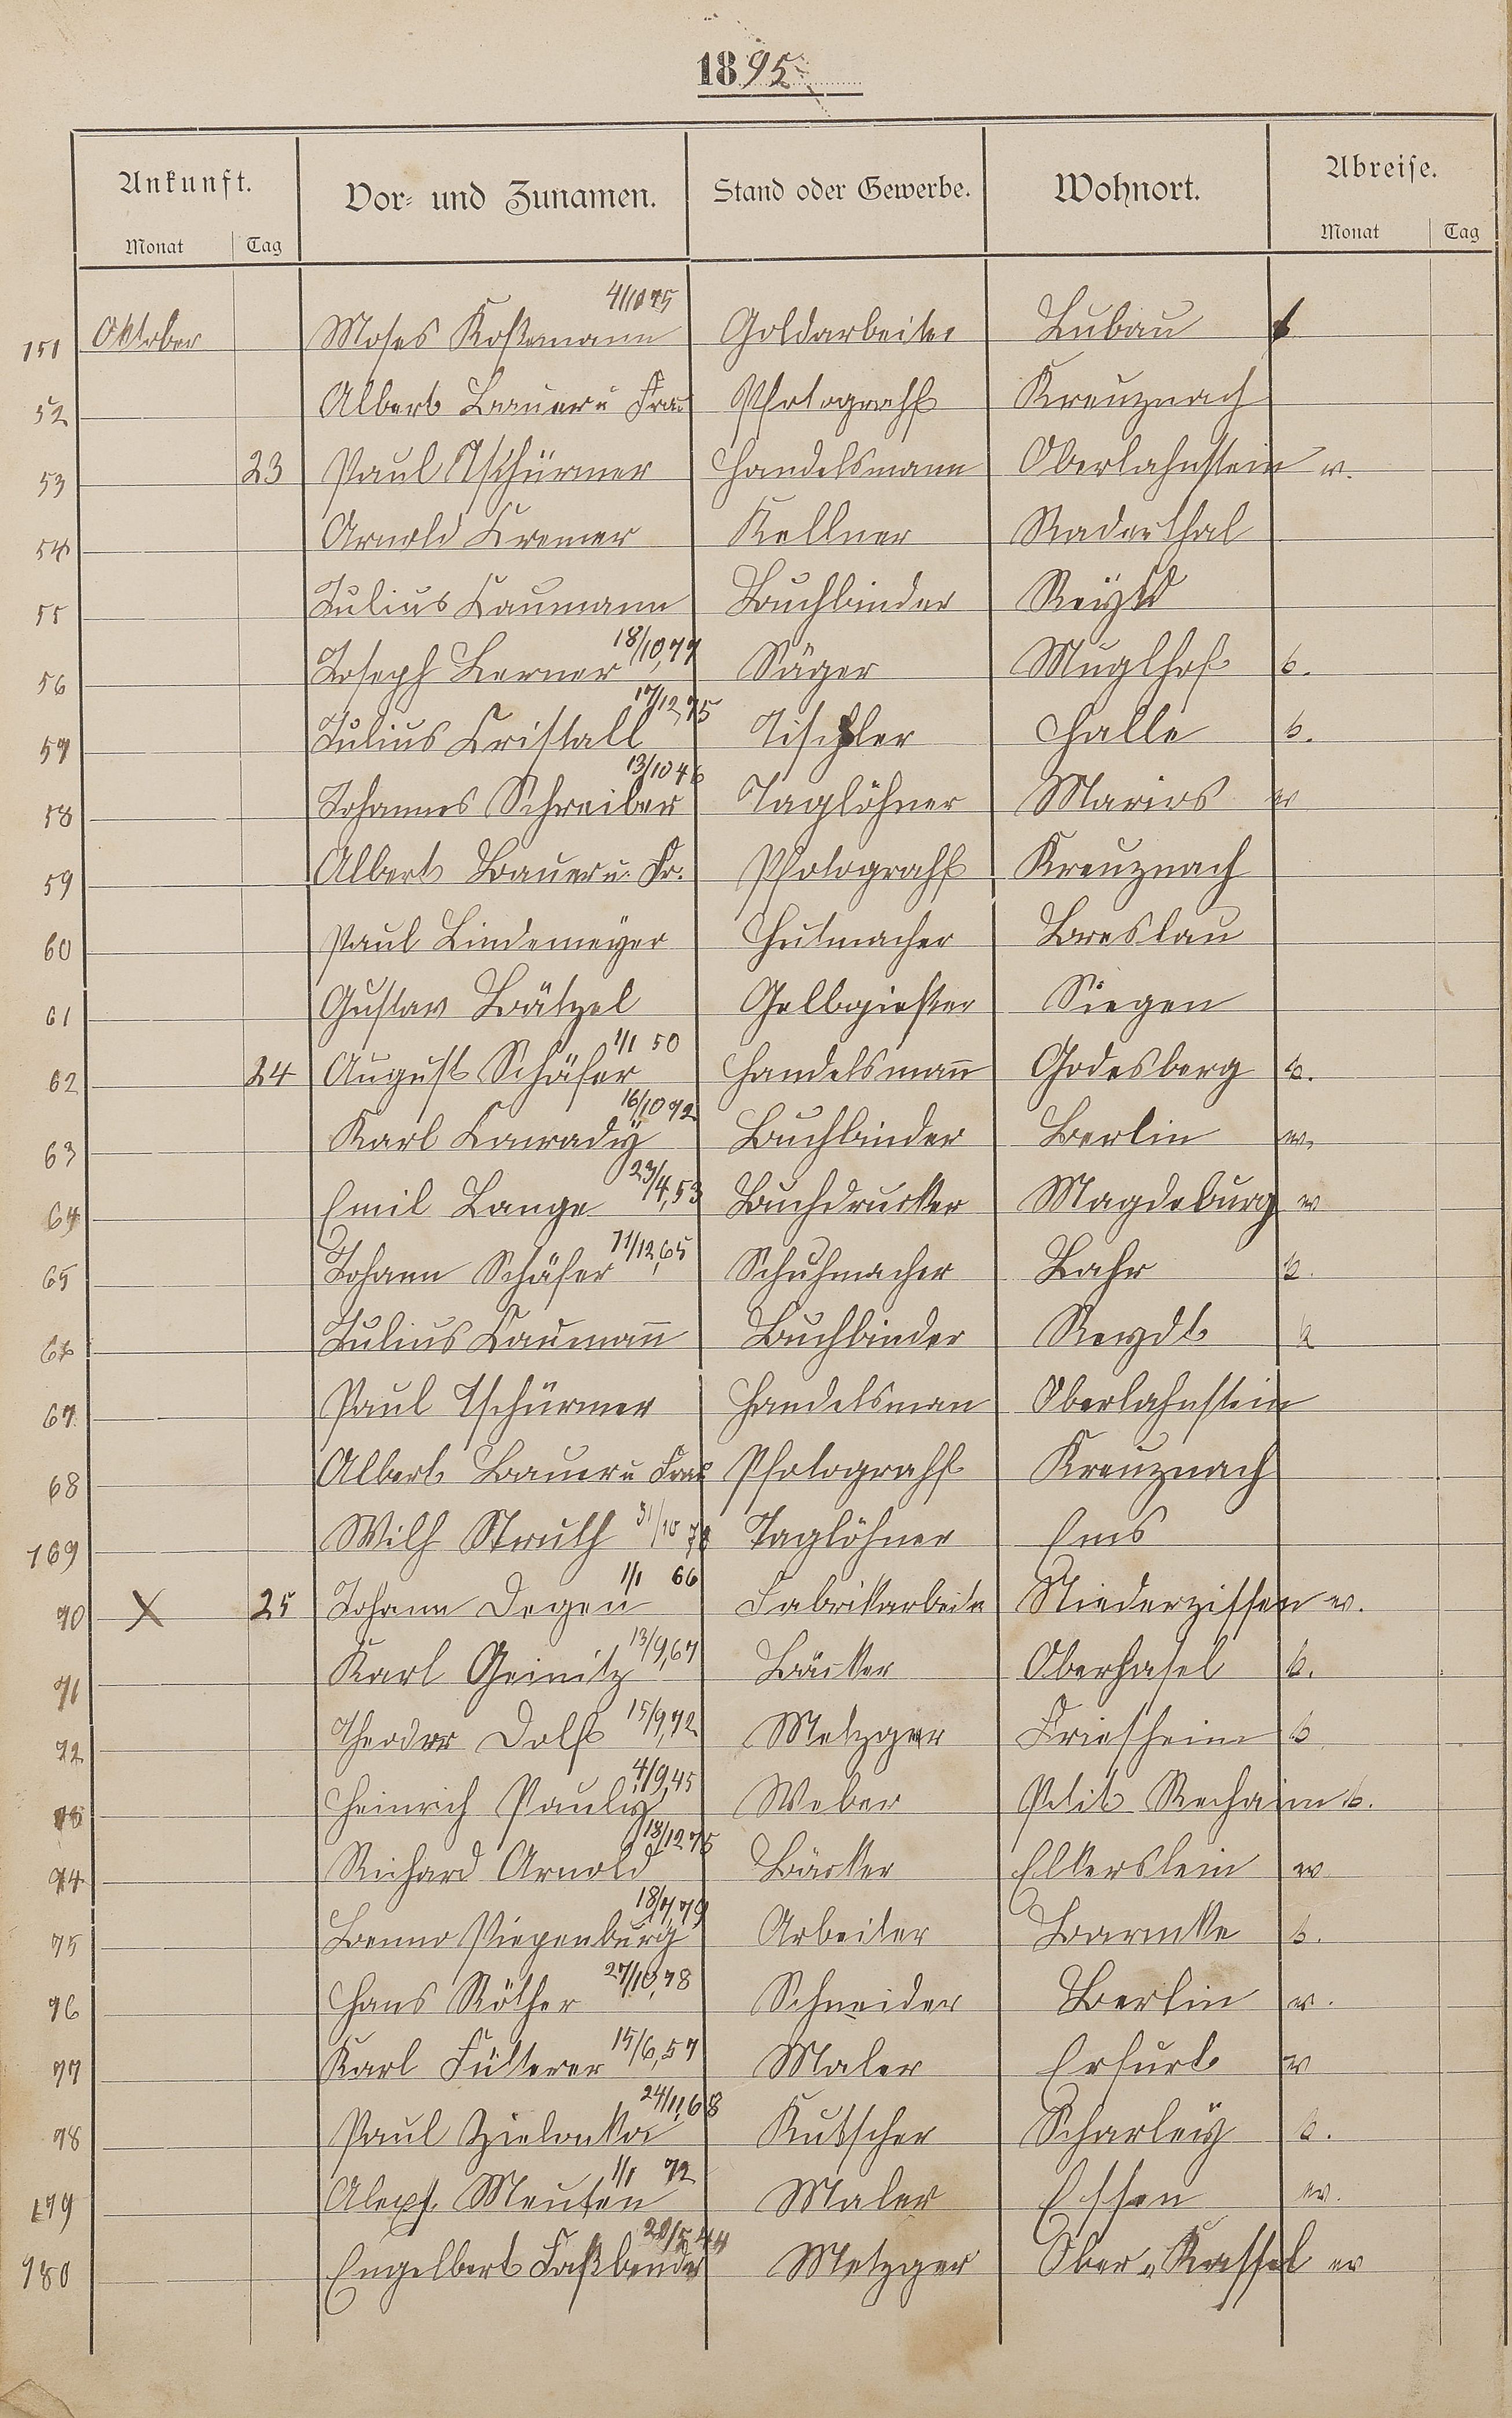 1895
Ankunft. Vor- und Zunamen. Stand oder Gewerbe. Wohnort. Abreise.
Monat Tag Monat Tag
151 Oktober Moses Koßmann 4/10 75 Goldarbeiter Lubau
52 Albert Bauer u Frau Photograph Kreuznach
53 23 Paul Tschürmer Handelsmann Oberlahnstein w.
54 Arnold Cremer Kellner Raderthal
55 Julius Caumann Buchbinder Reydt
56 Joseph Lerner 18/10,77 Säger Muglhof b.
57 Julius Cristall 17/12,75 Tischler Halle b.
58 Johannes Schreiber 13/10 46 Taglöhner Marios w
59 Albert Bauer u. Fr. Photograph Kreuznach
60 Paul Lindemeyer Hutmacher Breslau
61 Gustav Bätzel Gelbgießer Siegen
62 24 August Schäfer 1/1 50 Handelsmann Godesberg b.
63 Karl Conrady 16/10 72 Buchbinder Berlin w.
64 Emil Lange 23/4,53 Buchdrucker Magdeburg w
65 Johann Schäfer 11/12,65 Schuhmacher Lahr b.
66 Julius Caumann Buchbinder Reydt b
67 Paul Tschürmer Handelsman Oberlahnstein
68 Albert Bauer u Frau Photograph Kreuznach
169 Wilh Struth 31/10 Taglöhner Ems
70 X 25 Johann Degen 1/1 66 Fabrikarbeiter Niederzissen w.
71 Karl Geinitz 13/9,67 Bäcker Oberhasel b.
72 Theodor Dolfs 15/9,72 Metzger Friesheim b
73 Heinrich Pauly 4/9,45 Weber Petit Rechain b.
74 Richard Arnold 18/12 75 Bäcker Elkerslein w
75 Benno Piepenburg 18/7,79 Arbeiter Barmke b.
76 Hans Röther 27/10,78 Schneider Berlin w.
77 Karl Fütterer 15/6,57 Maler Erfurt w
78 Paul Zielonka 24/11,68 Kutscher Scharley b.
179 Meusen 1/1 72 Maler Essen w.
180 Engelbert Faßbender 20/5 44 Metzger Ober-Kassel w